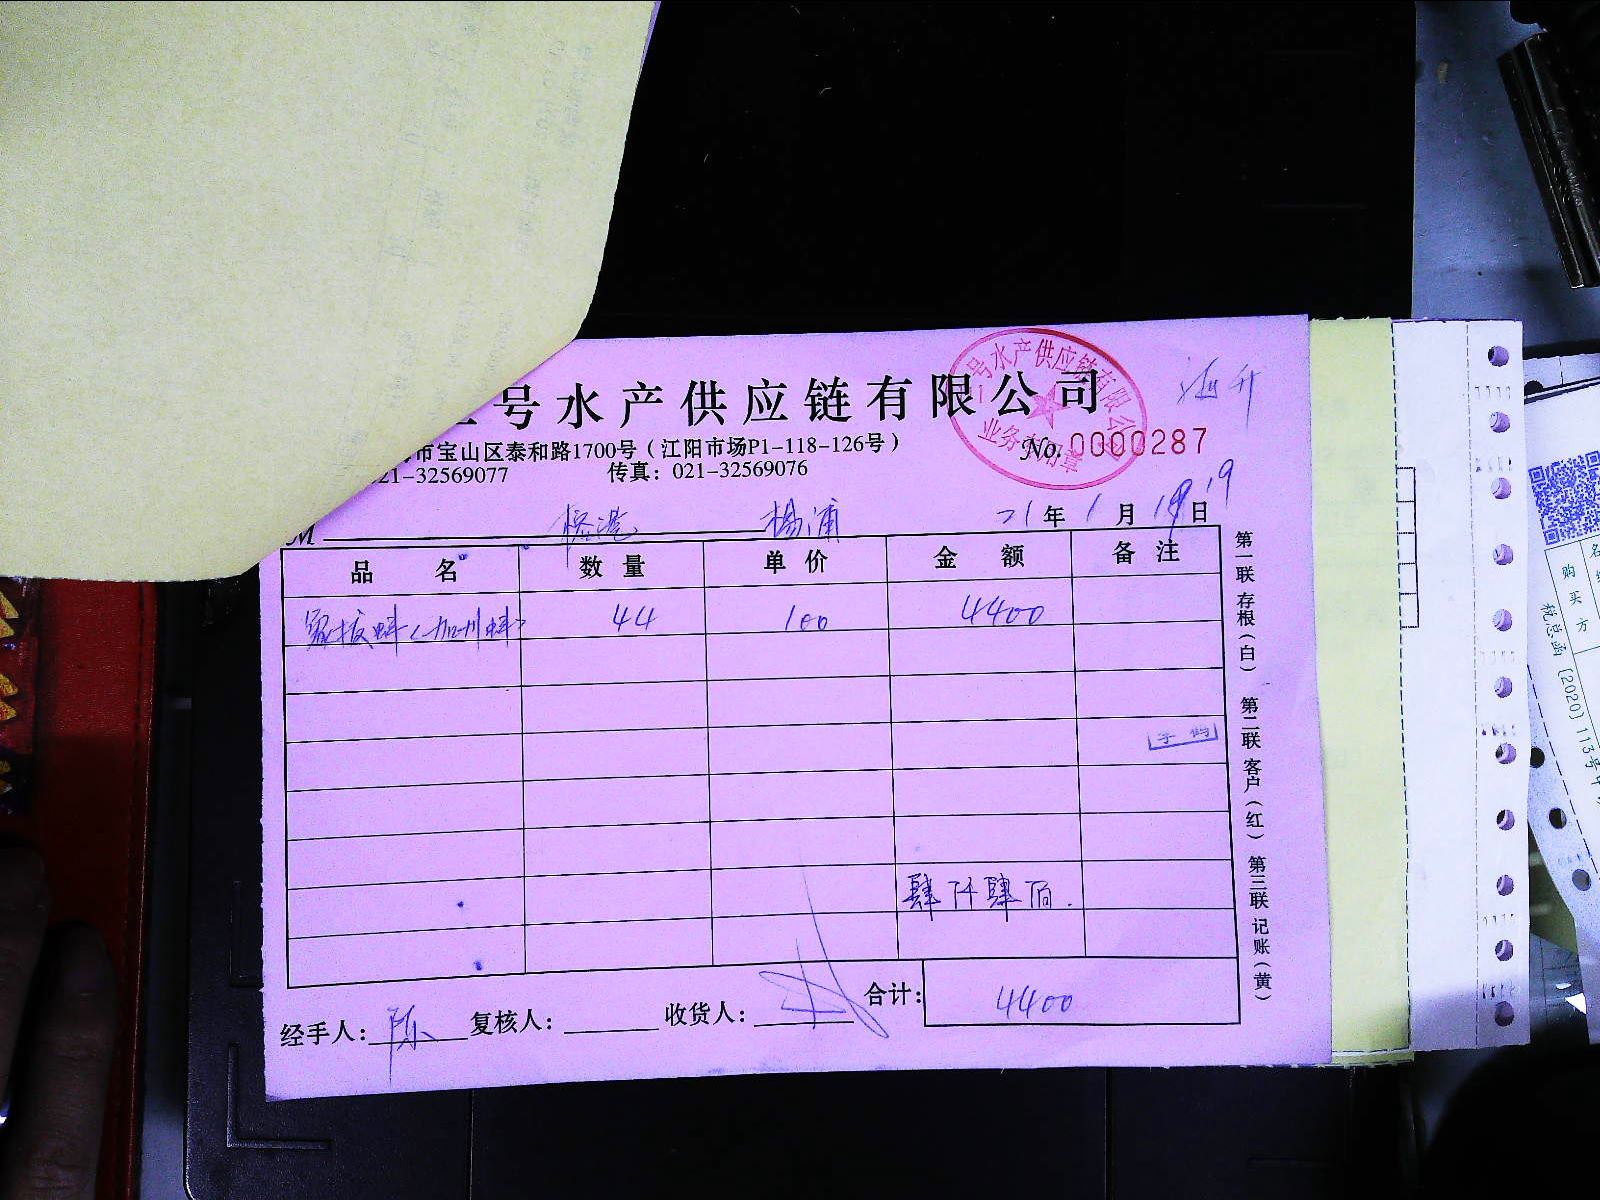 号水产供应链有限公司
号水产供应链有限公
业务专用章
海升
市宝山区泰和路1700号（江阳市场P1-118-126号）
No. 0000287
21-32569077 传真：021-32569076
M 杨浦 21年1月19日 19
品名 数量 单价 金额 备注
象拔蚌(加州蚌) 44 100 4400
肆仟肆佰.
合计： 4400
经手人：陈 复核人： 收货人：
第一联 存根（白） 第二联 客户（红） 第三联 记账（黄）
购买方
税总函〔2020〕113号